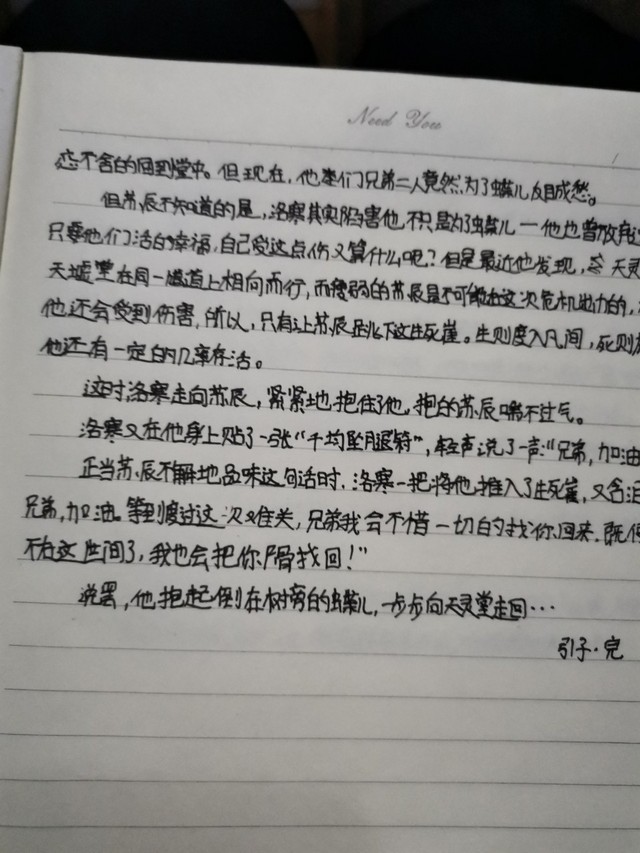 Need You
恋不舍的回到堂中。但现在，他们兄弟二人竟然为了蝶儿反目成愁。
但苏辰不知道的是，洛寒其实陷害他不只是为了蝶儿一他也曾放弃过
只要他们活的幸福，自己受这点伤又算什么呢？但是最近他发现，天灵
天墟堂在同一隧道上相向而行，而瘦弱的苏辰是不可能在这次危机出力的，
他还会受到伤害，所以，只有让苏辰跳下这生死崖。生则度入凡间，死则
他还有一定的几率存活。
这时，洛寒走向苏辰，紧紧地抱住了他。抱的苏辰喘不过气。
洛寒又在他身上贴了一张“千均坠腿符”，轻声说了一声：“兄弟，加油
正当苏辰不解地品味这句话时，洛寒一把将他推入了生死崖，又含泪
兄弟，加油。等到度过这次难关，兄弟我会不惜一切的找你回来，既使
不在这世间了，我也会把你骨找回！”
说罢，他抱起倒在树旁的蝶儿，一步步向天灵堂走回…
引子·完